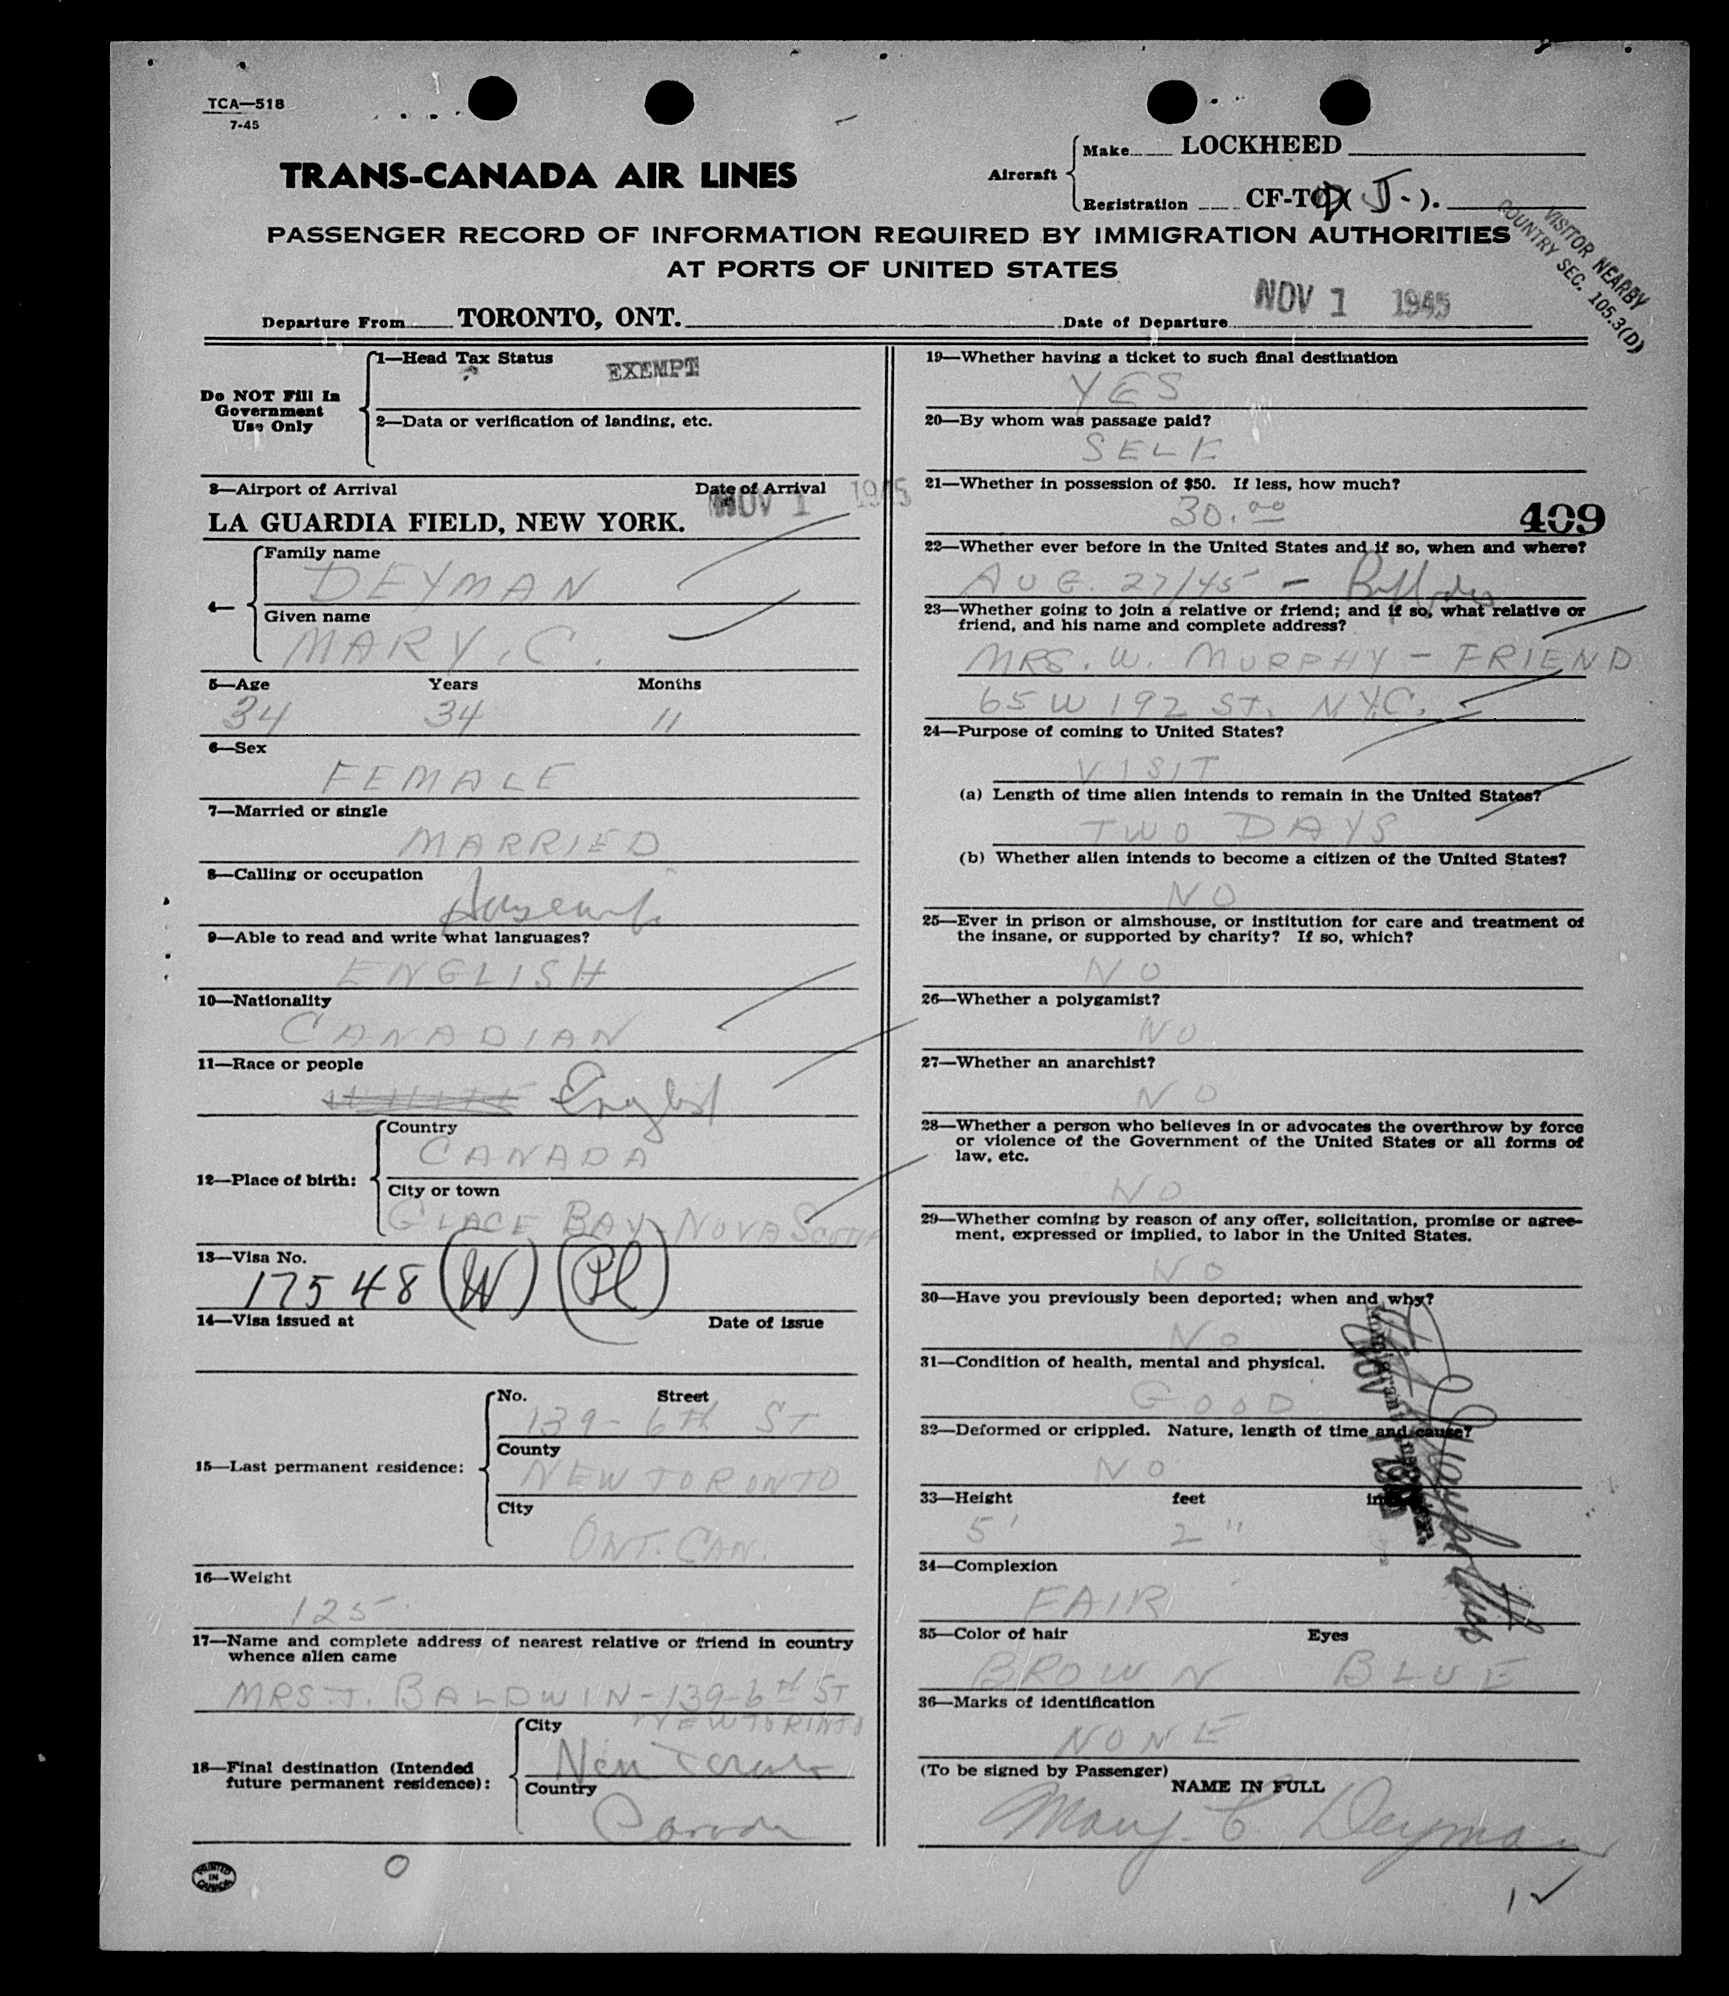 TCA—518
7-45
TRANS-CANADA AIR LINES
Aircraft
Make LOCKHEED
Registration CF-T ( J- ).
PASSENGER RECORD OF INFORMATION REQUIRED BY IMMIGRATION AUTHORITIES
AT PORTS OF UNITED STATES
VISITOR NEARBY
COUNTRY SEC. 105.3(D)
Departure From TORONTO, ONT.
Date of Departure NOV 1 1945
Do NOT Fill In
Government
Use Only
1—Head Tax Status
EXEMPT
2—Data or verification of landing, etc.
3—Airport of Arrival Date of Arrival
NOV 1 1945
LA GUARDIA FIELD, NEW YORK.
4—
Family name
DEYMAN
Given name
MARY. C.
5—Age Years Months
34 34 11
6—Sex
FEMALE
7—Married or single
MARRIED
8—Calling or occupation
Housewife
9—Able to read and write what languages?
ENGLISH
10—Nationality
CANADIAN
11—Race or people
English
12—Place of birth:
Country
CANADA
City or town
GLACE BAY, NOVA SCOTIA
13—Visa No.
17548 (W)
14—Visa issued at Date of issue
15—Last permanent residence:
No. Street
139-6th ST
County
NEW TORONTO
City
ONT. CAN.
16—Weight
125
17—Name and complete address of nearest relative or friend in country
whence alien came
MRS J. BALDWIN-139-6TH ST
NEW TORONTO
18—Final destination (Intended
future permanent residence):
City
New Toronto
Country
Canada
PRINTED
IN
CANADA
0
19—Whether having a ticket to such final destination
YES
20—By whom was passage paid?
SELF
21—Whether in possession of $50. If less, how much?
30.00
409
22—Whether ever before in the United States and if so, when and where?
AUG. 27/45 - Buffalo
23—Whether going to join a relative or friend; and if so, what relative or
friend, and his name and complete address?
MRS. W. MURPHY - FRIEND
65 W 192 ST. N.Y.C.
24—Purpose of coming to United States?
VISIT
(a) Length of time alien intends to remain in the United States?
TWO DAYS
(b) Whether alien intends to become a citizen of the United States?
NO
25—Ever in prison or almshouse, or institution for care and treatment of
the insane, or supported by charity? If so, which?
NO
26—Whether a polygamist?
NO
27—Whether an anarchist?
NO
28—Whether a person who believes in or advocates the overthrow by force
or violence of the Government of the United States or all forms of
law, etc.
NO
29—Whether coming by reason of any offer, solicitation, promise or agree-
ment, expressed or implied, to labor in the United States.
NO
30—Have you previously been deported; when and why?
NO
31—Condition of health, mental and physical.
GOOD
32—Deformed or crippled. Nature, length of time and cause?
NO
33—Height feet
5' 2"
34—Complexion
FAIR
35—Color of hair Eyes
BROWN BLUE
36—Marks of identification
NONE
(To be signed by Passenger)
NAME IN FULL
Mary. C. Deyman
1 ✓